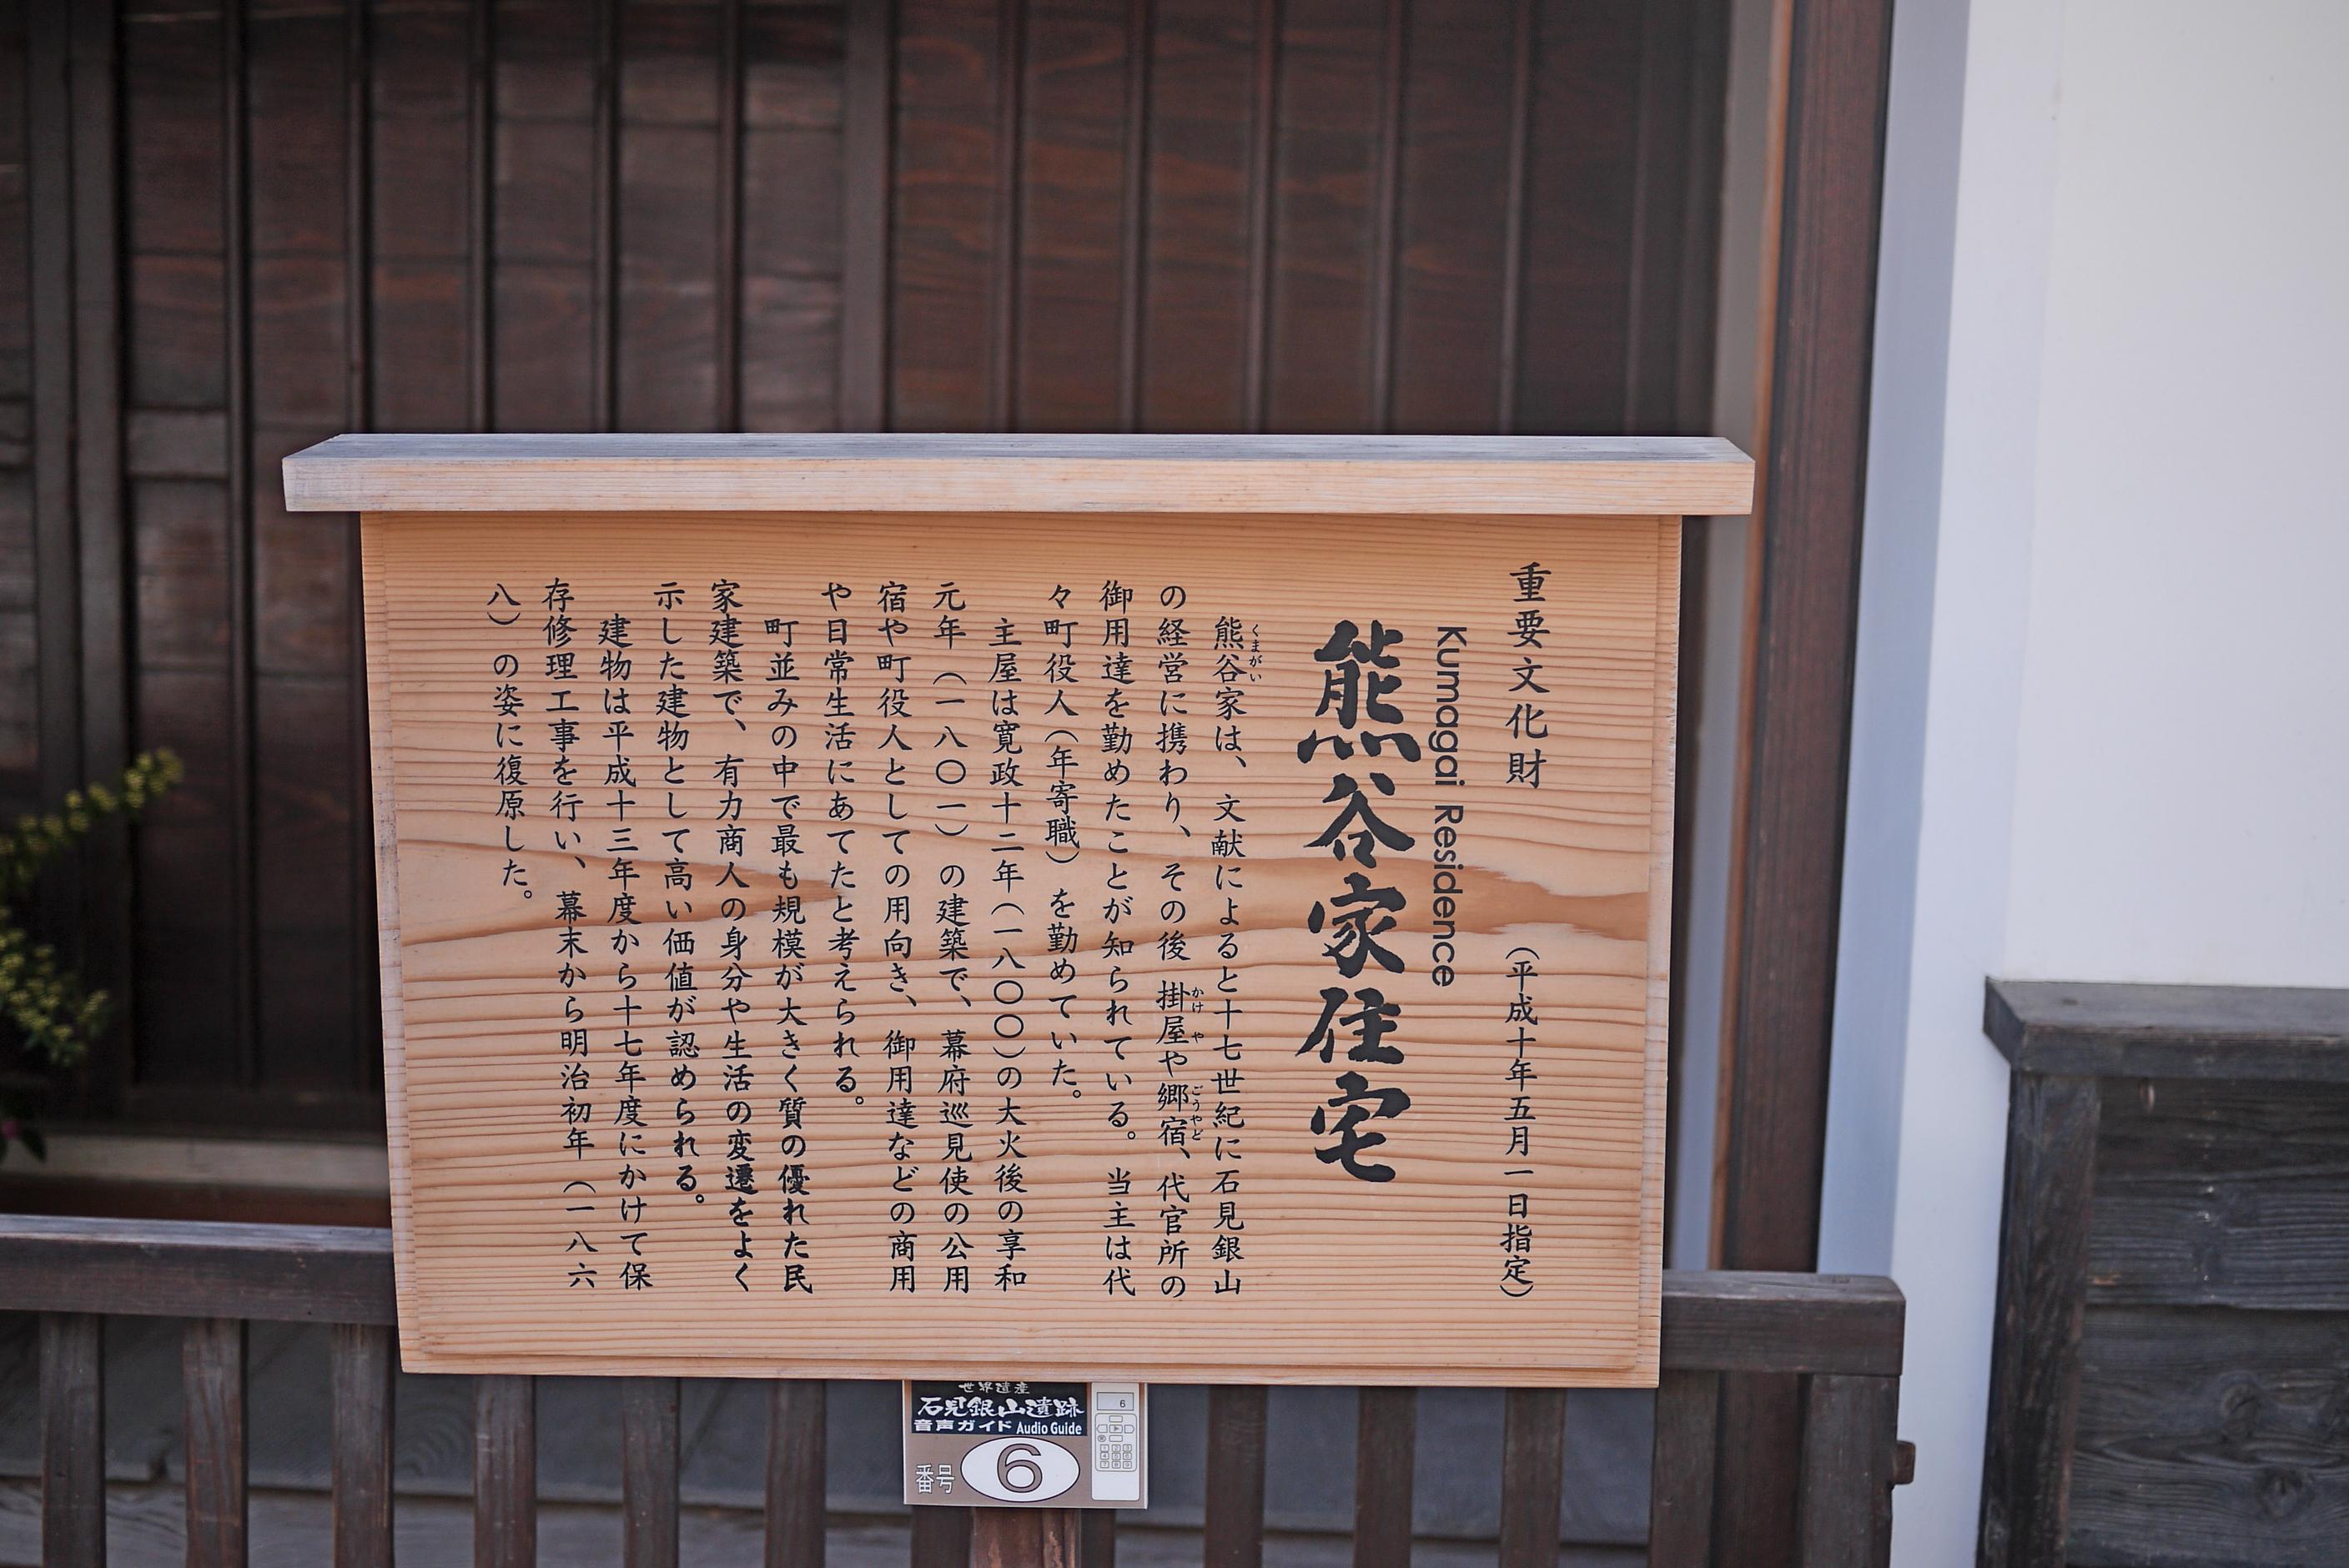 重要文化財　（平成十年五月一日指定）
Kumagai Residence
熊谷家住宅
くまがい
熊谷家は、文献によると十七世紀に石見銀山
かけや　ごうやど
の経営に携わり、その後　掛屋や郷宿、代官所の
御用達を勤めたことが知られている。当主は代
々町役人（年寄職）を勤めていた。
主屋は寛政十二年（一八〇〇）の大火後の享和
元年（一八〇一）の建築で、幕府巡見使の公用
宿や町役人としての用向き、御用達などの商用
や日常生活にあてたと考えられる。
町並みの中で最も規模が大きく質の優れた民
家建築で、有力商人の身分や生活の変遷をよく
示した建物として高い価値が認められる。
建物は平成十三年度から十七年度にかけて保
存修理工事を行い、幕末から明治初年（一八六
八）の姿に復原した。
世界遺産
石見銀山遺跡
音声ガイド Audio Guide
番号 6
6